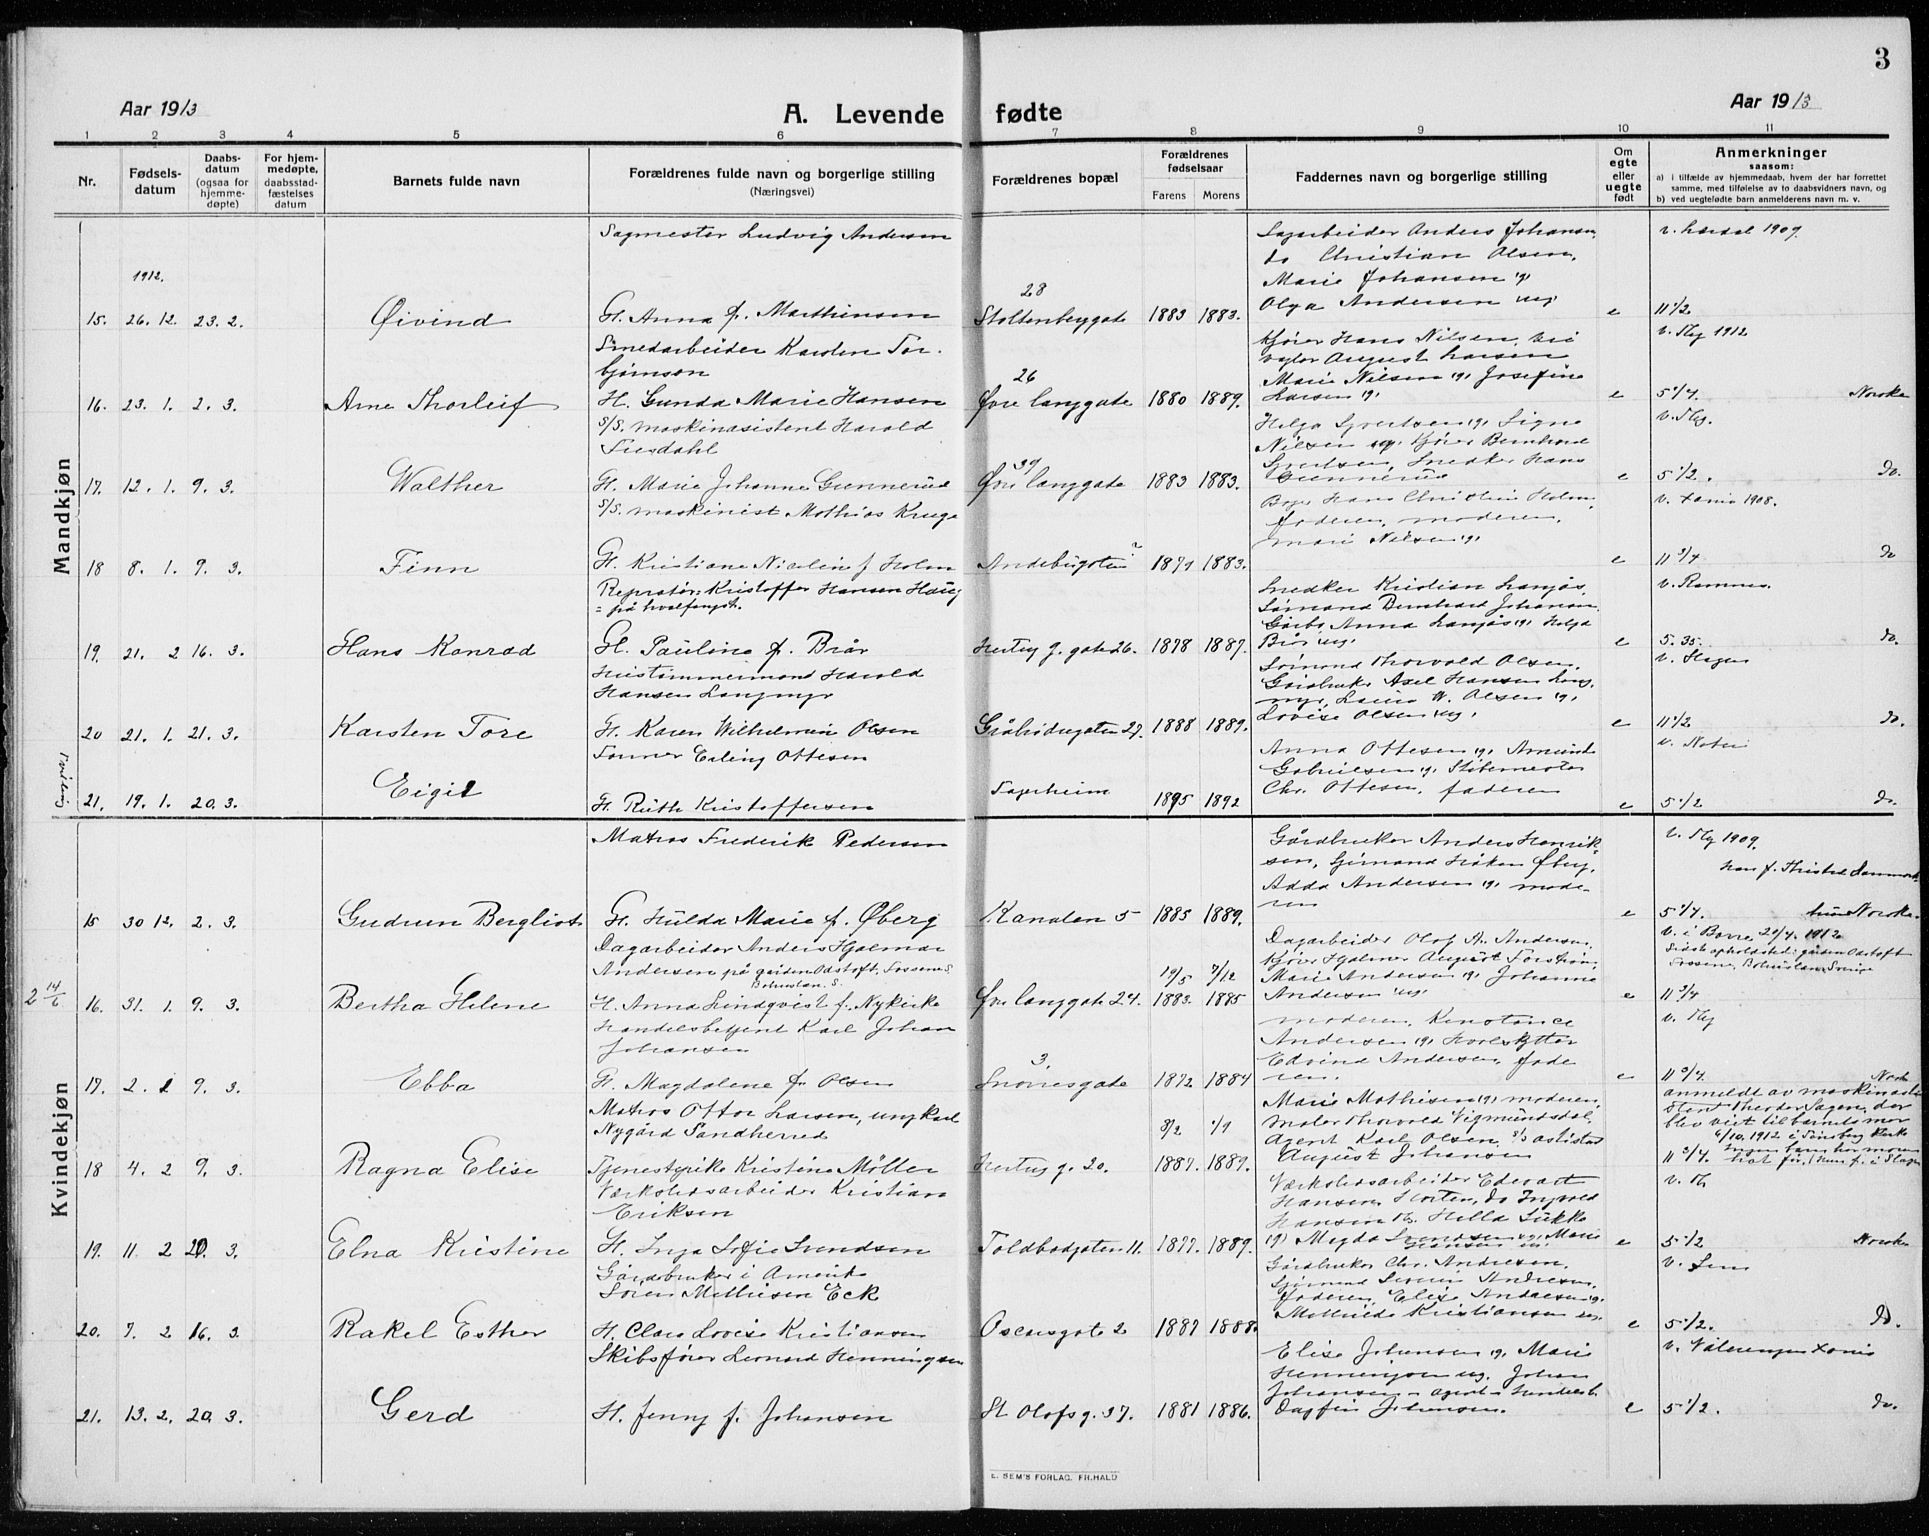 3
Aar 1913
A. Levende fødte
Aar 1913
1 2 3 4 5 6 7 8 9 10 11
Nr.
Fødsels-
datum
Daabs-
datum
(ogsaa for
hjemme-
døpte)
For hjem-
medøpte,
daabsstad-
fæstelses
datum
Barnets fulde navn
Forældrenes fulde navn og borgerlige stilling
(Næringsvei)
Forældrenes bopæl
Forældrenes
fødselsaar
Farens Morens
Faddernes navn og borgerlige stilling
Om
egte
eller
uegte
født
Anmerkninger
saasom:
a) i tilfælde av hjemmedaab, hvem der har forrettet
samme, med tilføielse av to daabsvidners navn, og
b) ved uegtefødte barn anmelderens navn m. v.
Mandkjøn
Sagmester Ludvig Andersen
Sagarbeider Anders Johansen,
do Christian Olsen,
Marie Johansen
Olga Andersen
1909.
1912.
28
15. 26. 12. 23. 2. Øivind
H. Anna f. Marthinsen
Stoltenbergate 1883 1883. e 11 1/2
Smedarbeider Karsten Tor-
bjørnsen
Kjører Hans Nilsen,
August Larsen
Marie Nilsen Josefine
Larsen
v. Tbg 1912
26
16. 23. 1. 2. 3. Arne Thorleif
H. Gunda Marie Hansen
Øvre langgate 1880 1889. e 5 1/4. Norske
S/S. maskinasistent Harald
Helga Syvertsen Signe
Nilsen Kjører Bernhard
Syvertsen, Snedker Hans
Gunnerud
v. Tbg.
39
17. 12. 1. 9. 3. Walther
H. Marie Johanne Gunnerud
Øvre langgate 1883 1883. e 5 1/2. do.
S/S. maskinist Mathias Kruge
Hans Christian Holm,
faderen, moderen,
Marie Nilsen
v. Xania 1908.
18 8. 1. 9. 3. Finn
H. Kristiane Nicoline f Holm
Andebugaten 2 1871 1883. e 11 3/4 do
Reprætør Kristoffer Hansen Haug
på hvalfangst.
Snedker Kristian
Sømand Bernhard Johansen
Anna Helga
Brår
v. Ramnes.
19. 21. 2 16. 3. Hans Konrad
H. Pauline f. Brår
Hertug g. gate 26. 1878 1887. e 5. 35. do.
Skibstømmermand Harald
Hansen Langmyr
Sømand Thorvald Olsen,
Gårdbruker Axel Hansen Lang-
myr, Laura W. Olsen
Lovise Olsen
v. Slagen
20 21. 1. 21. 3. Karsten Tore
H. Karen Wilhelmine Olsen
Gråbrødregaten 27. 1888 1889. e 11 1/2 do.
Tømrer Erling Ottesen
Anna Ottesen Amunda
Gabrielsen Støbemester
Chr. Ottesen, faderen
21. 19. 1. 20. 3. Eigil
H. Ruth Kristoffersen
Fagerheim 1895 1892 e 5 1/2 do.
Kvindekjøn
Matros Frederik Pedersen
Gårdbruker Anders Henrik-
sen, Sjømand Håkon Øberg,
Adda Andersen mode-
ren
v. Tbg 1909.
han f. Thisted Danmark
15 30 12. 2. 3. Gudrun Bergliot
H. Hulda Marie f. Øberg
Kanalen 5 1885 1889. e 5 1/4. hun Norske.
Dagarbeider Anders Hjalmar
Andersen på gården Odstoft, Tossene S.
Bohuslän. S.
Dagarbeider Olof A. Andersen,
Kjører Hjalmar August
Marie Andersen Johanne
Andersen
v. i Borre 20/4. 1912
Sidste opholdsted: gården Odstoft
Tossene, Bohuslän, Sverige
2 14/6
19/5 7/12
16. 31. 1. 9. 3. Bertha Helene
H. Anna Lindqvist f. Nykirke
Øvre langgate 24. 1883. 1885 e 11 3/4
Handelsbetjent Karl Johan
Johansen
moderen, Konstance
Andersen Hvalskytter
Edvind Andersen, fade-
ren.
v. Tbg
3.
17. 2. 1 9. 3. Ebba
H. Magdalene f. Olsen
Snorresgate 1872 1884 e 11 3/4. Norske
Matros Ottor Larsen, ungkarl
Nygård Sandherred
Marie Mathisen moderen,
Maler Thorvald Vigmundsdal,
Agent Karl Olsen, S/S asistent
August Johansen
anmeldt av maskinasi-
stent Theodor Sagen, der
blev viet til barnets mor
6/10. 1912 i Tønsberg kirke
8/2 1/9
18 4. 2 9. 3. Ragna Elise
Tjenestepike Kristine Møller
Hertug g. 20. 1887. 1889. 11 3/4.
Værkstedsarbeider Kristian
Eriksen
Værkstedsarbeider Edvart
Hansen Horten, do Ingvald
Hansen Tbg. Hilda Lukke
Magda Svendsen Marie
Hansen
19. 11. 2 20. 3. Elna Kristine
H. Inga Sofie Svendsen
Toldbodgaten 11. 1877. 1889. e 5 1/2 Norske
Gårdsbruker i Amerika
Søren Mathisen Eck
Gårdbruker Chr. Andresen,
Sjømand Severin Andresen,
faderen, Elise Andresen
Mathilde Kristiansen
v. Sem
20. 7. 2 16. 3. Rakel Esther
H. Clara Lovise Kristiansen
Oscarsgate 2 1887 1888. e 5 1/2. do.
Skibsfører Leonard Henningsen
Elise Johansen Marie
Henningsen Johan
Johansen - agent -
Dagfin Johansen.
v. Vålerengen Xania
21. 13. 2. 20. 3. Gerd
H. Jenny f. Johansen
St Olofs g. 37. 1881 1886. e 5 1/2. do.
E. SEM'S FORLAG, FR.HALD